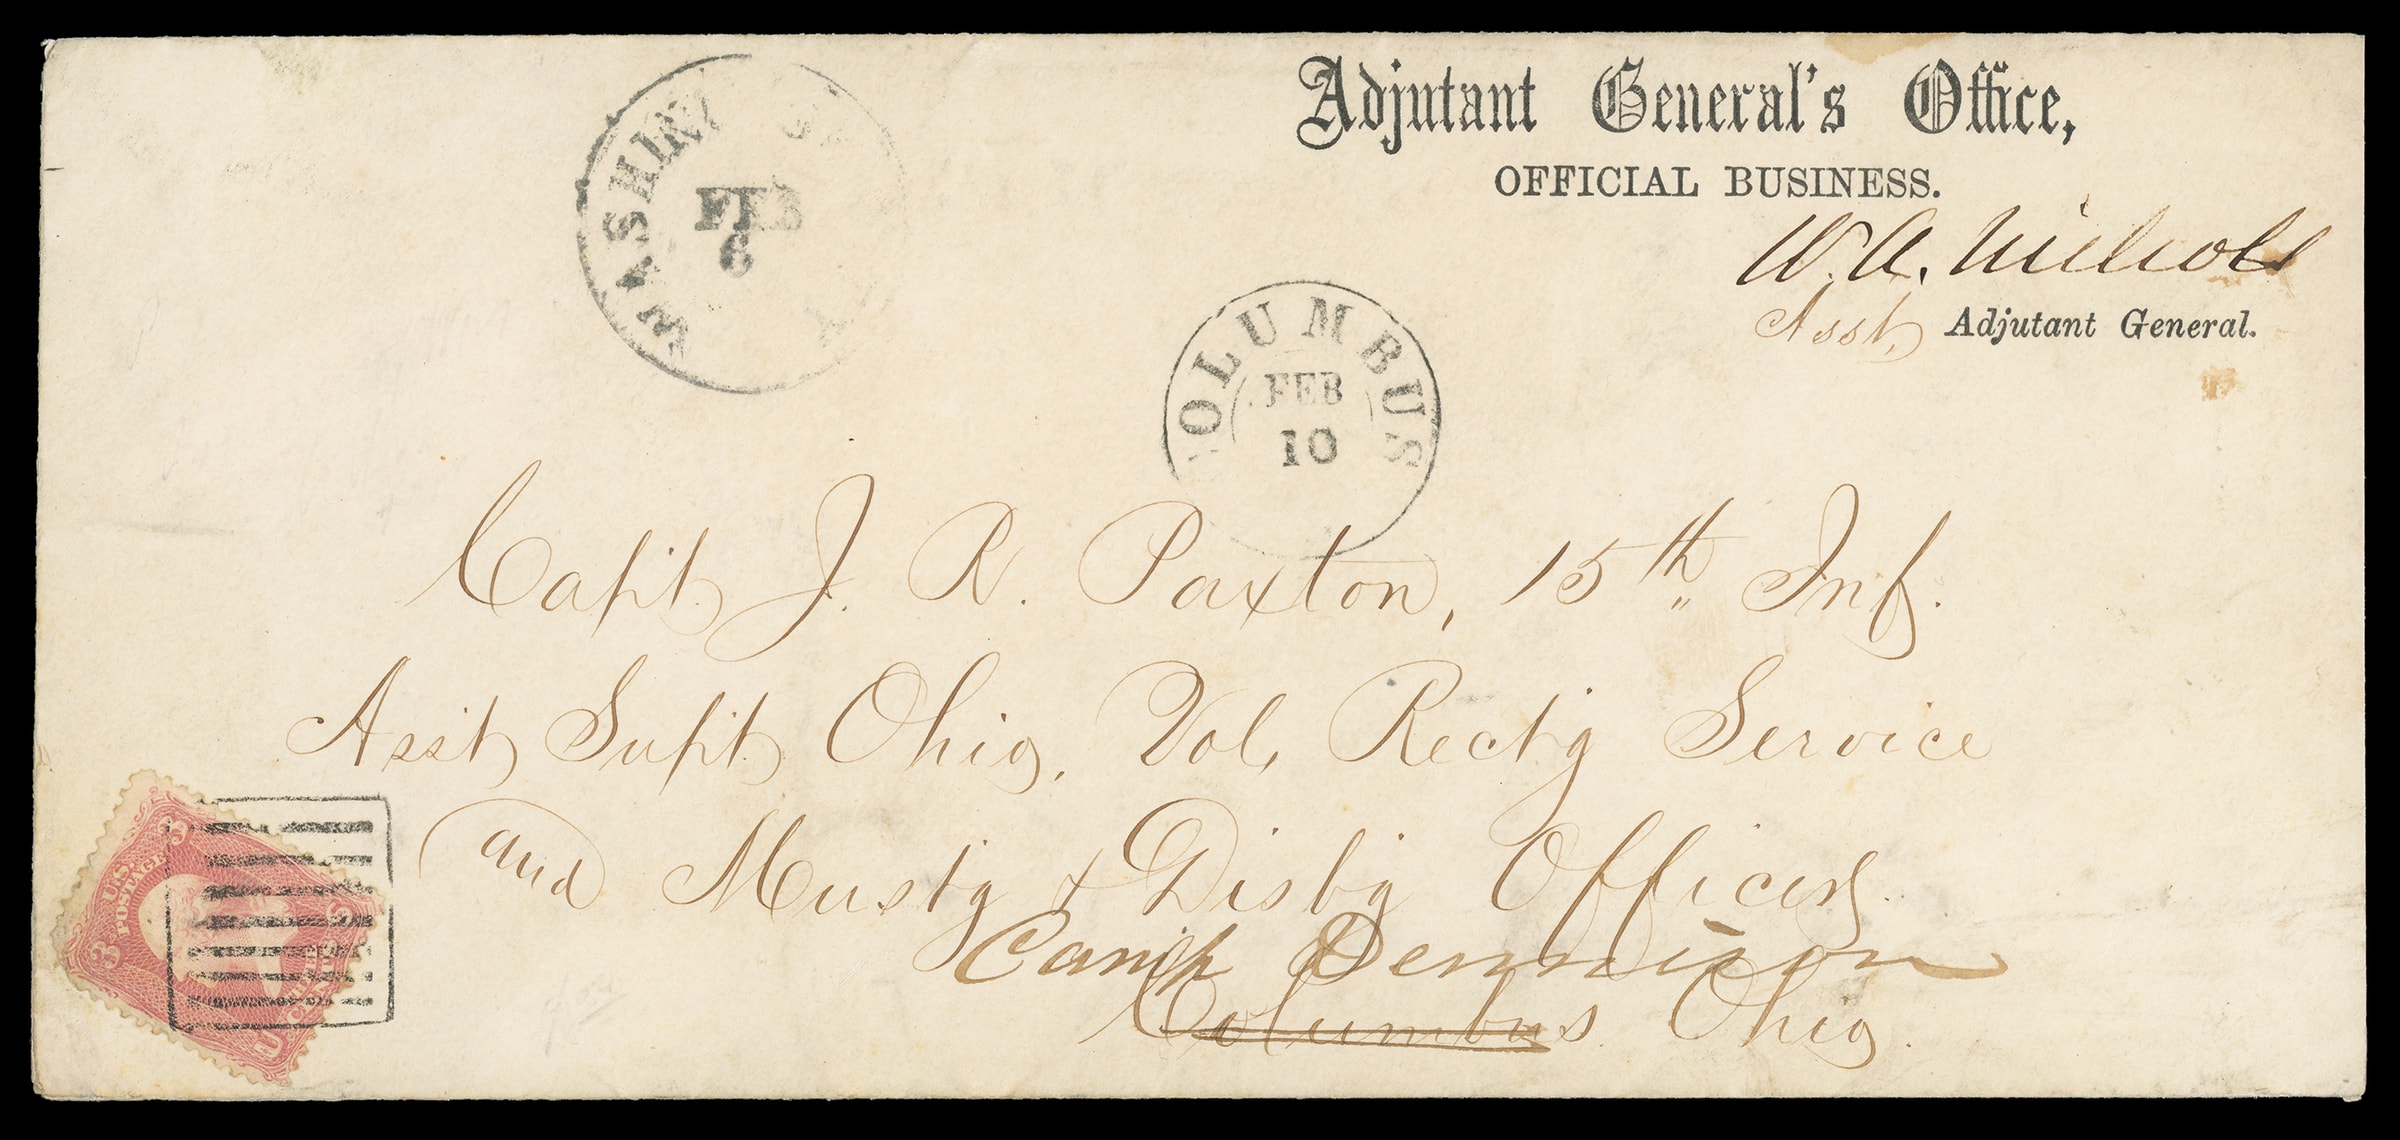 Adjutant General's Office,
OFFICIAL BUSINESS.
W. A. Nichols
Asst. Adjutant General.
WASHIN
FEB
6
OLUMBUS
FEB
10
Capt. J. R. Paxton, 15th Inf.
Asst. Supt. Ohio, Vol. Rectg Service
and Mustg & Disbg Officer.
Camp Dennison
Columbus. Ohio.
U.S. POSTAGE
3 3
U S
CENTS